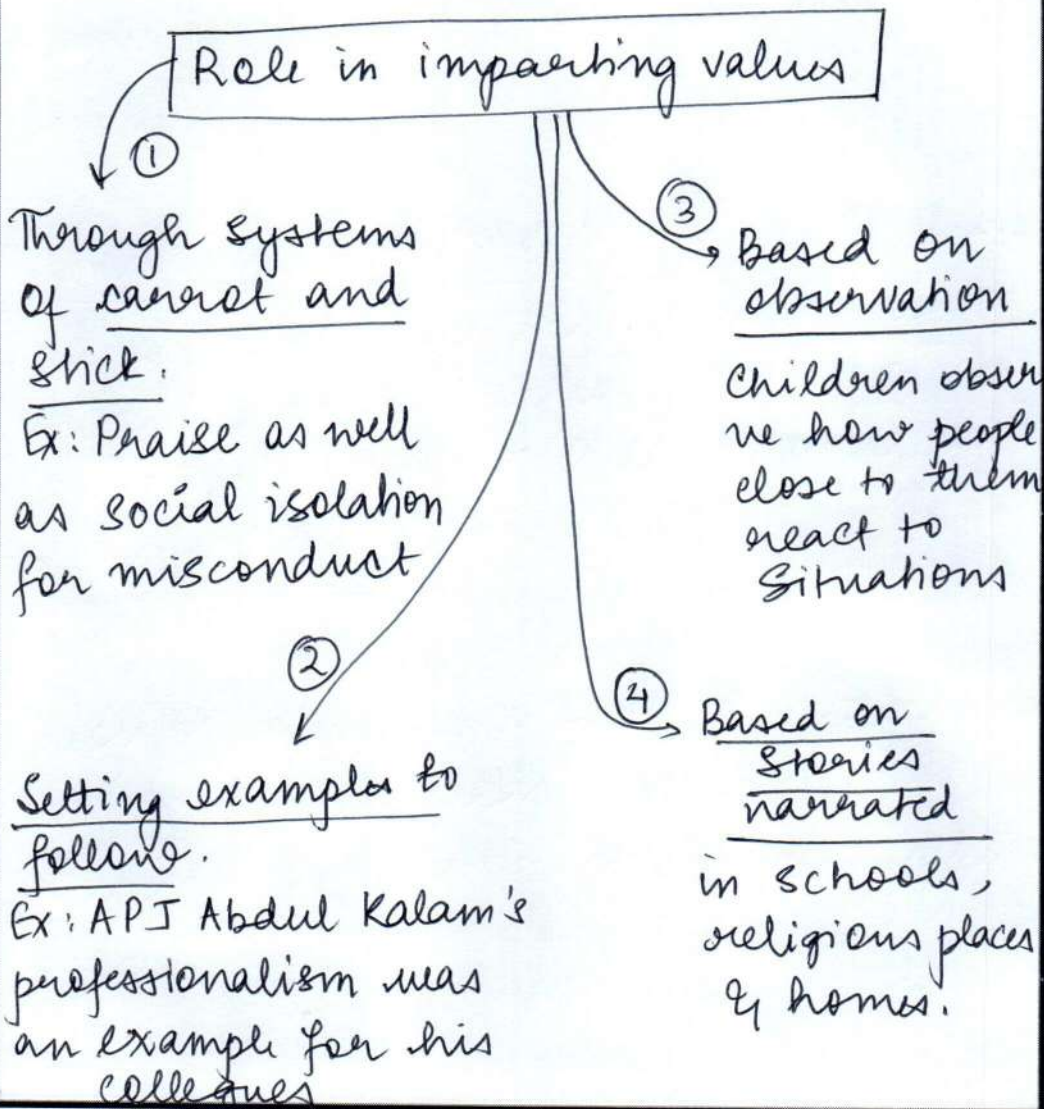 Role in imparting values
①
Through systems
of carrot and
stick.
Ex: Praise as well
as social isolation
for misconduct
②
Setting examples to
follow.
Ex: APJ Abdul Kalam's
professionalism was
an example for his
colleques
③
Based on
observation
Children obser
ve how people
close to them
react to
situations
④
Based on
stories
narrated
in schools,
religious places
& homes.